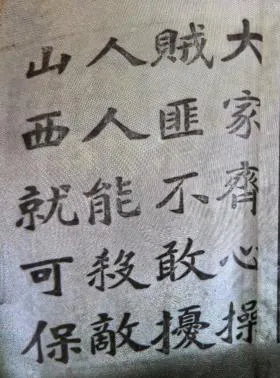 大家齊心操
賊匪不敢擾
人人能殺敵
山西就可保